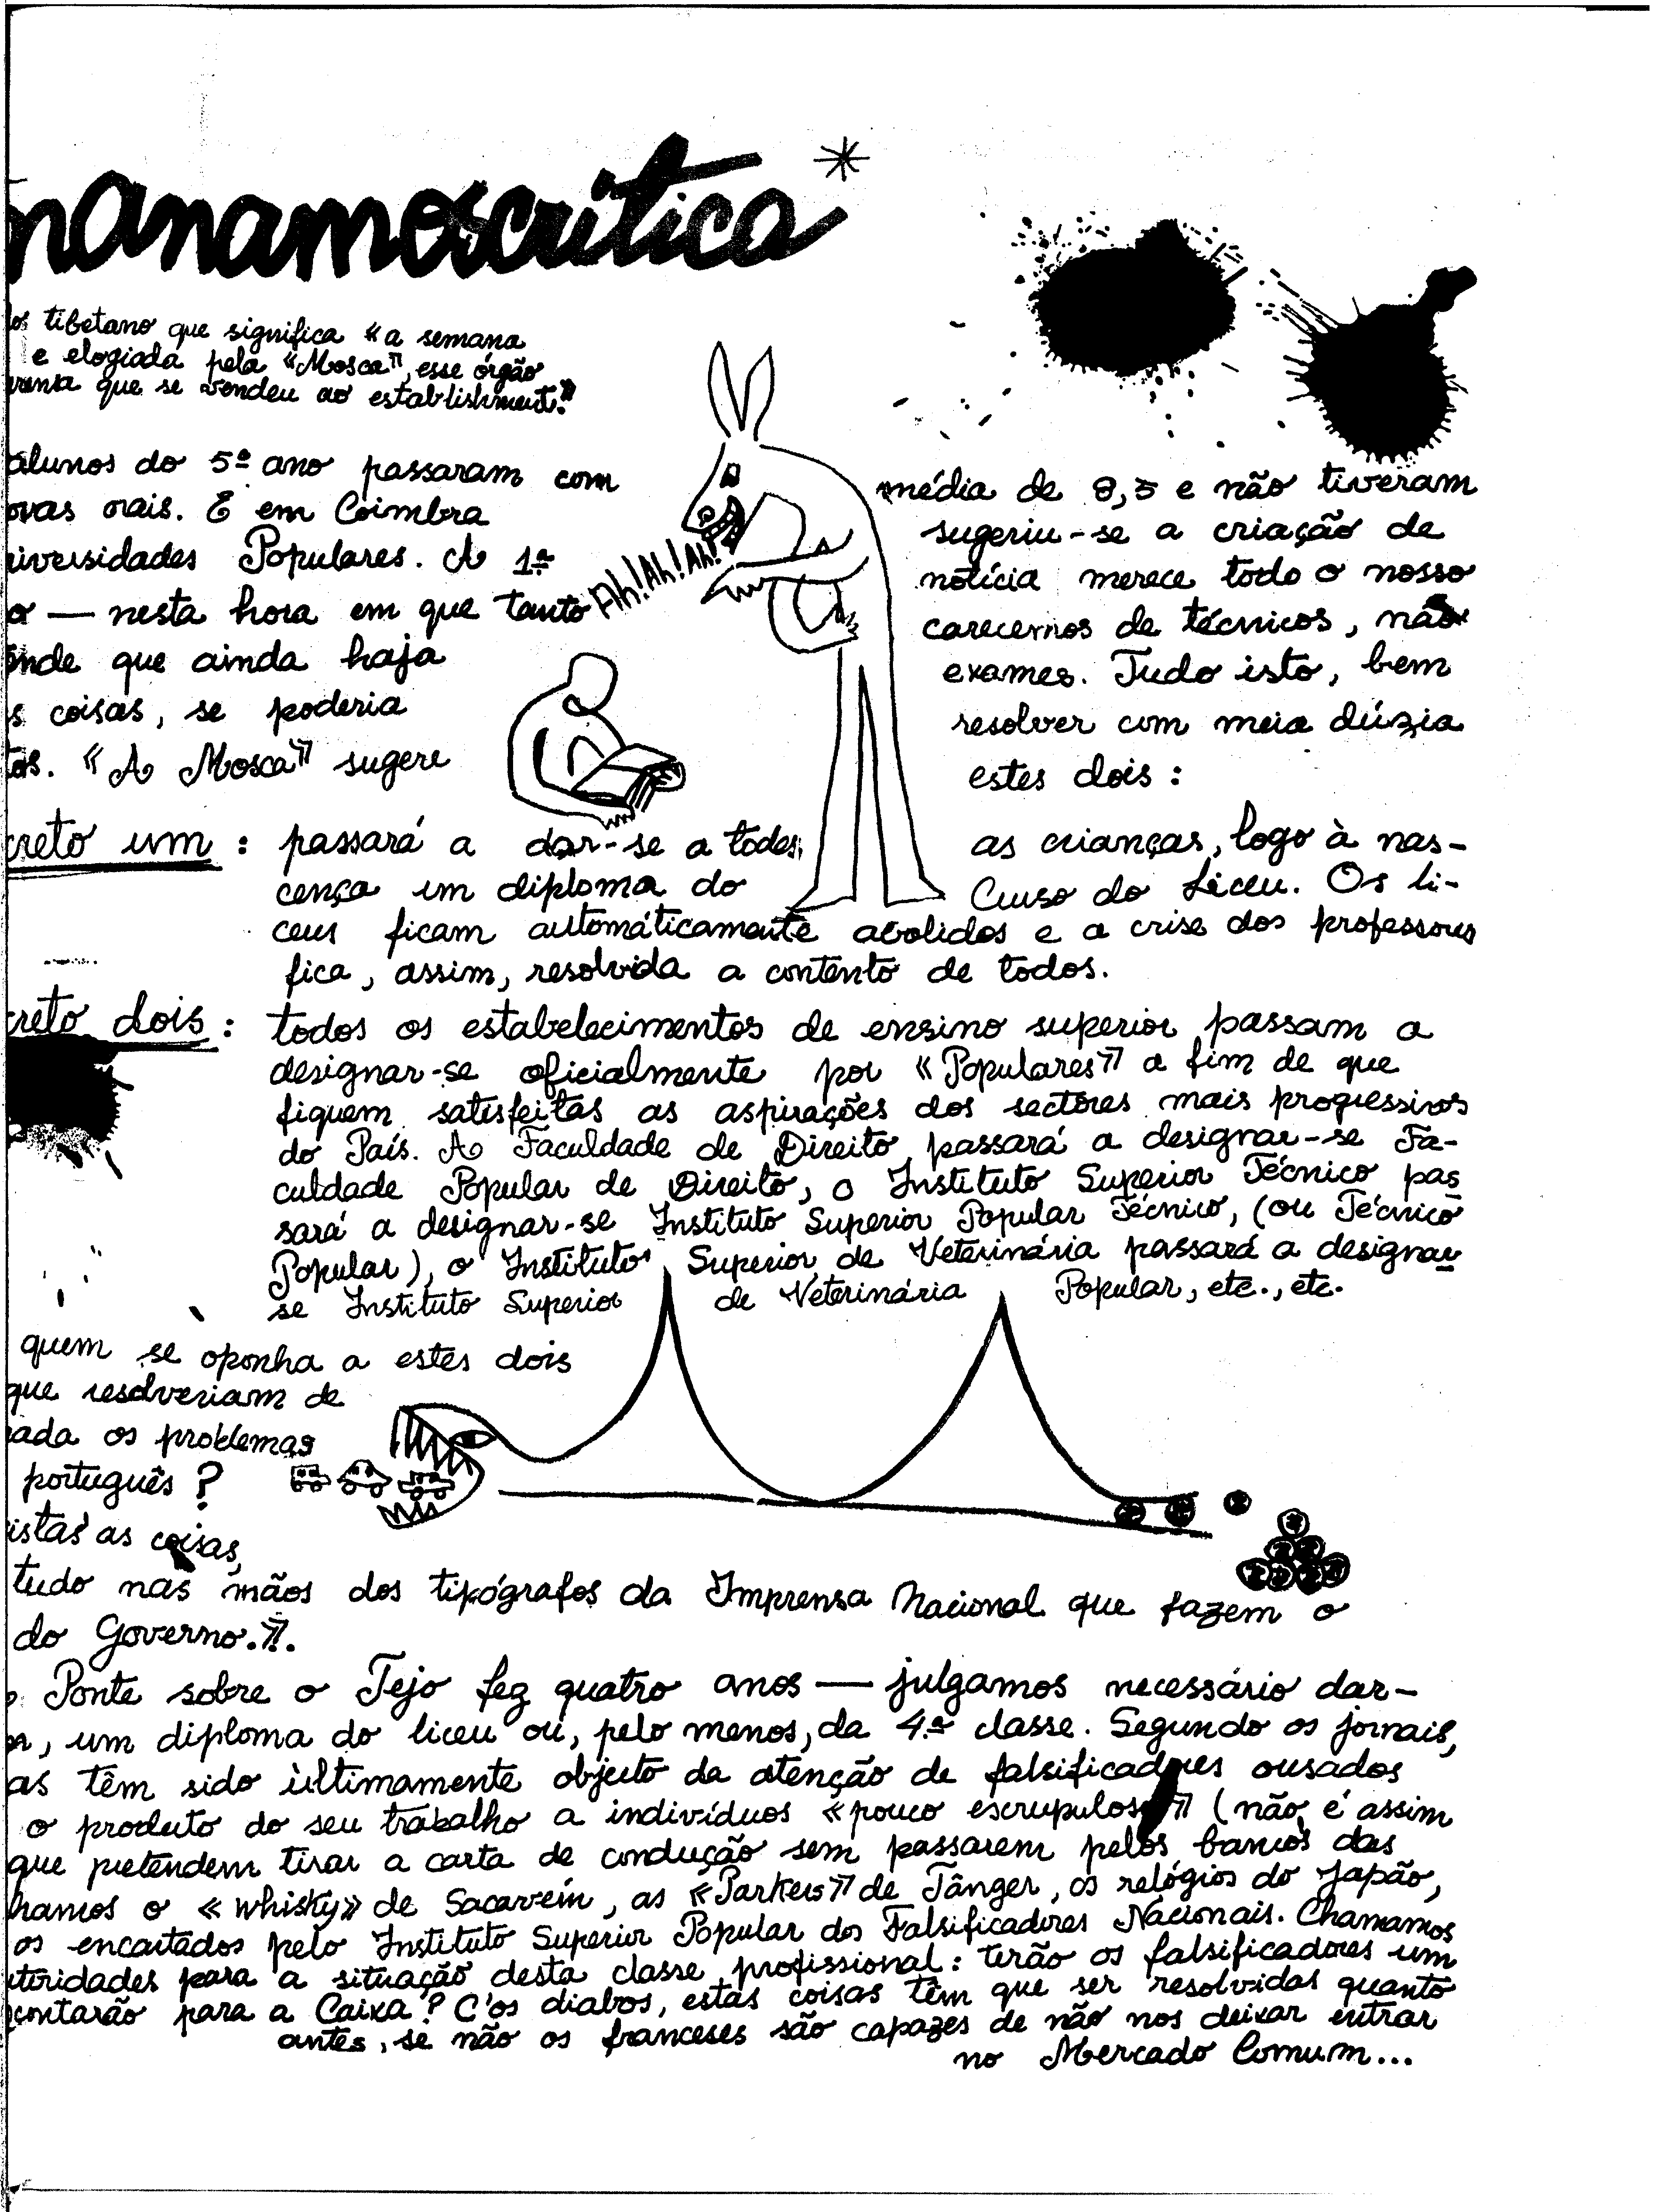 nanamoscritica *
los tibetano que significa «a semana
e elogiada pela «Mosca», esse órgão
prensa que se vendeu ao establishment.»
alunos do 5º ano passaram com média de 8,5 e não tiveram
ovas orais. E em Coimbra sugeriu-se a criação de
niversidades Populares. A 1ª notícia merece todo o nosso
o — nesta hora em que tanto carecemos de técnicos, não
ende que ainda haja exames. Tudo isto, bem
s coisas, se poderia resolver com meia dúzia
tos. «A Mosca» sugere estes dois:
Ah! Ah! Ah!
creto um: passará a dar-se a todas as crianças, logo à nas-
cença um diploma do Curso do Liceu. Os li-
ceus ficam automáticamente abolidos e a crise dos professores
fica, assim, resolvida a contento de todos.
creto dois: todos os estabelecimentos de ensino superior passam a
designar-se oficialmente por «Populares» a fim de que
fiquem satisfeitas as aspirações dos sectores mais progressivos
do País. A Faculdade de Direito passará a designar-se Fa-
culdade Popular de Direito, o Instituto Superior Técnico pas
sará a designar-se Instituto Superior Popular Técnico, (ou Técnico
Popular), o Instituto Superior de Veterinária passará a designar
se Instituto Superior de Veterinária Popular, etc., etc.
quem se oponha a estes dois
que resolveriam de
ada os problemas
português?
istas as coisas,
tudo nas mãos dos tipógrafos da Imprensa Nacional que fazem o
do Governo.».
Ponte sobre o Tejo fez quatro anos — julgamos necessário dar-
, um diploma do liceu ou, pelo menos, da 4.ª classe. Segundo os jornais,
as têm sido ùltimamente objecto da atenção de falsificadores ousados
o produto do seu trabalho a indivíduos «pouco escrupulosos» (não é assim
que pretendem tirar a carta de condução sem passarem pelos bancos das
hamos o «whisky» de Sacavém, as «Parkers» de Tânger, os relógios do Japão,
os encartados pelo Instituto Superior Popular dos Falsificadores Nacionais. Chamamos
utoridades para a situação desta classe profissional: terão os falsificadores um
contarão para a Caixa? C'os diabos, estas coisas têm que ser resolvidas quanto
antes, se não os franceses são capazes de não nos deixar entrar
no Mercado Comum...